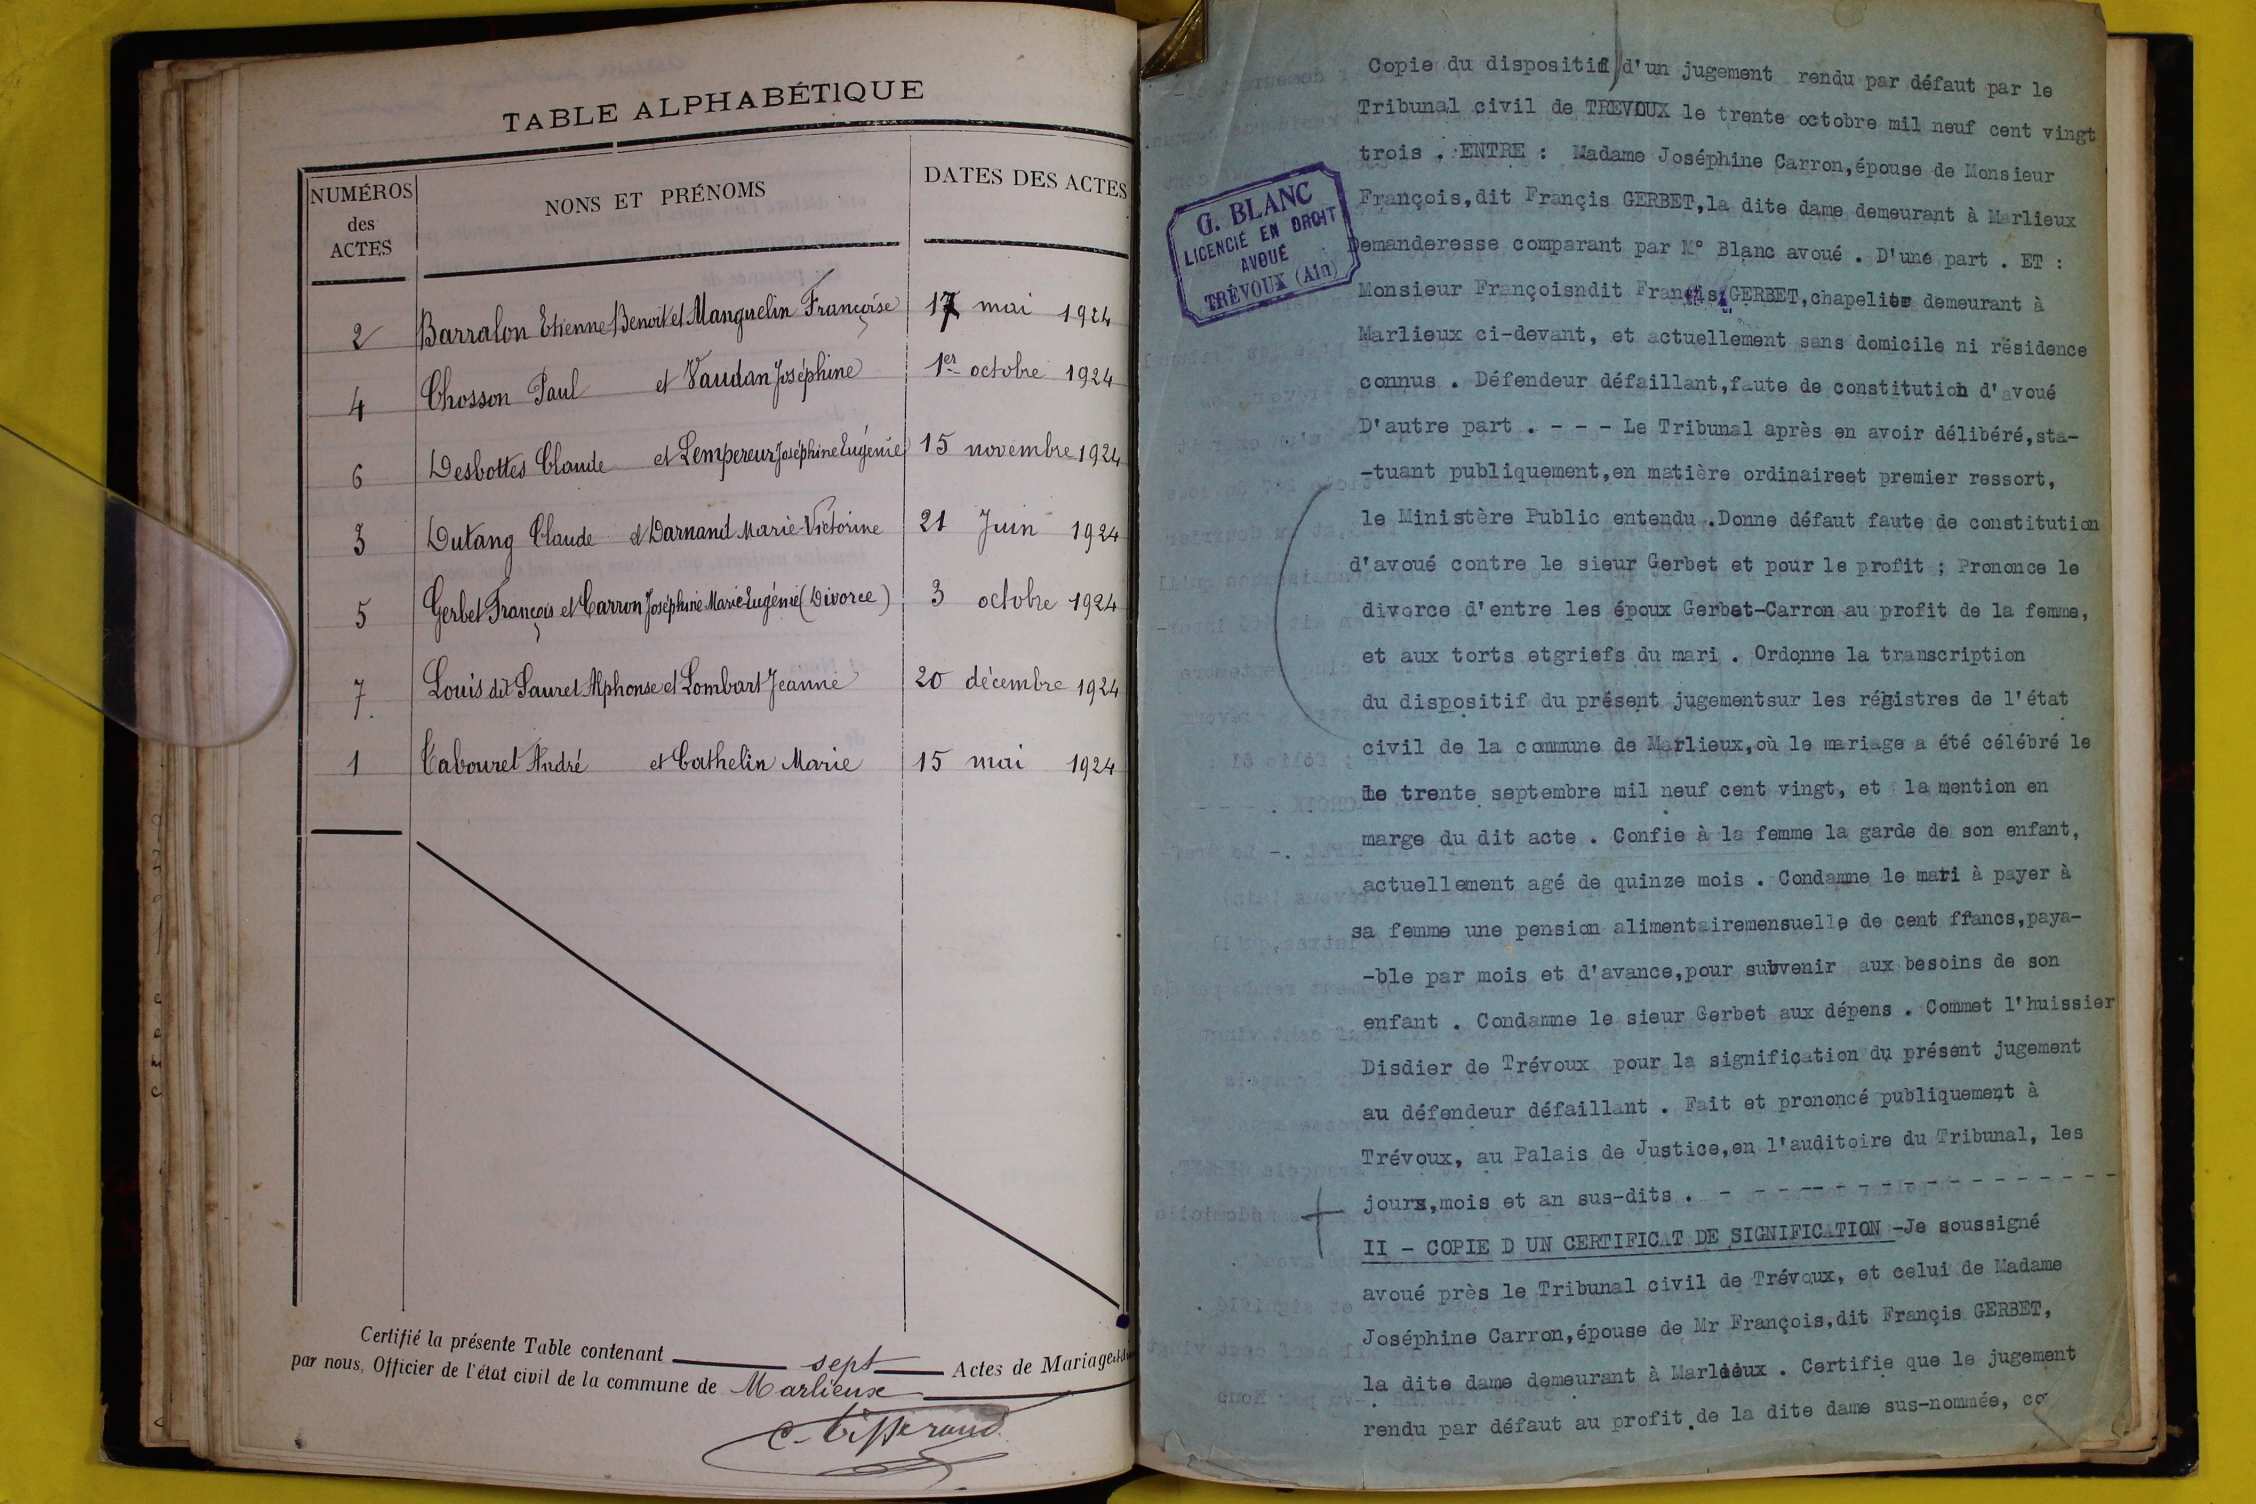 TABLE ALPHABÉTIQUE
NUMÉROS
des
ACTES
NONS ET PRÉNOMS
DATES DES ACTES
2 Barralon Etienne Benoit et Manguelin Françoise 17 mai 1924
4 Chosson Paul et Vaudan Joséphine 1er octobre 1924
6 Desbottes Claude et Lempereur Joséphine Eugénie 15 novembre 1924
3 Dutang Claude et Darnand Marie Victorine 21 Juin 1924
5 Gerbet François et Carron Joséphine Marie Eugénie (Divorce) 3 octobre 1924
7. Louis dit Sauret Alphonse et Lombart Jeanne 20 décembre 1924
1 Tabouret André et Cathelin Marie 15 mai 1924
Certifié la présente Table contenant sept Actes de Mariage
par nous, Officier de l'état civil de la commune de Marlieux
C. Tisserand
G. BLANC
LICENCIÉ EN DROIT
AVOUÉ
TRÉVOUX (Ain)
Copie du dispositif d'un jugement rendu par défaut par le
Tribunal civil de TREVOUX le trente octobre mil neuf cent vingt
trois . ENTRE : Madame Joséphine Carron,épouse de Monsieur
François,dit Françis GERBET,la dite dame demeurant à Marlieux
Demanderesse comparant par M° Blanc avoué . D'une part . ET :
Monsieur Françoisndit Françis GERBET,chapelier demeurant à
Marlieux ci-devant, et actuellement sans domicile ni résidence
connus . Défendeur défaillant,faute de constitution d'avoué
D'autre part . - - - Le Tribunal après en avoir délibéré,sta-
-tuant publiquement,en matière ordinaireet premier ressort,
le Ministère Public entendu .Donne défaut faute de constitution
d'avoué contre le sieur Gerbet et pour le profit ; Prononce le
divorce d'entre les époux Gerbet-Carron au profit de la femme,
et aux torts etgriefs du mari . Ordonne la transcription
du dispositif du présent jugementsur les régistres de l'état
civil de la commune de Marlieux,où le mariage a été célébré le
le trente septembre mil neuf cent vingt, et la mention en
marge du dit acte . Confie à la femme la garde de son enfant,
actuellement agé de quinze mois . Condamne le mari à payer à
sa femme une pension alimentairemensuelle de cent francs,paya-
-ble par mois et d'avance,pour subvenir aux besoins de son
enfant . Condamne le sieur Gerbet aux dépens . Commet l'huissier
Disdier de Trévoux pour la signification du présent jugement
au défendeur défaillant . Fait et prononcé publiquement à
Trévoux, au Palais de Justice,en l'auditoire du Tribunal, les
jours,mois et an sus-dits . - - - - - - - - - - - - - - - -
II - COPIE D UN CERTIFICAT DE SIGNIFICATION -Je soussigné
avoué près le Tribunal civil de Trévoux, et celui de Madame
Joséphine Carron,épouse de Mr François,dit Françis GERBET,
la dite dame demeurant à Marlieux . Certifie que le jugement
rendu par défaut au profit de la dite dame sus-nommée, co